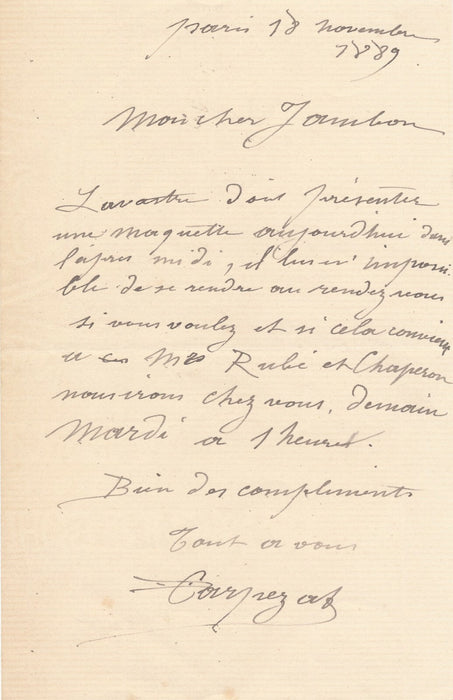 paris 18 novembre
1889
Mon cher Jambon
Lavastre doit présenter
une maquette aujourdhui dans
l'apres midi, il lui est impossi
ble de se rendre au rendez vous
si vous voulez et si cela convient
a ces Mrs Rubé et Chaperon
nous irons chez vous, demain
Mardi a 1 heure.
Bien des compliments
Tout a vous
Carpezat